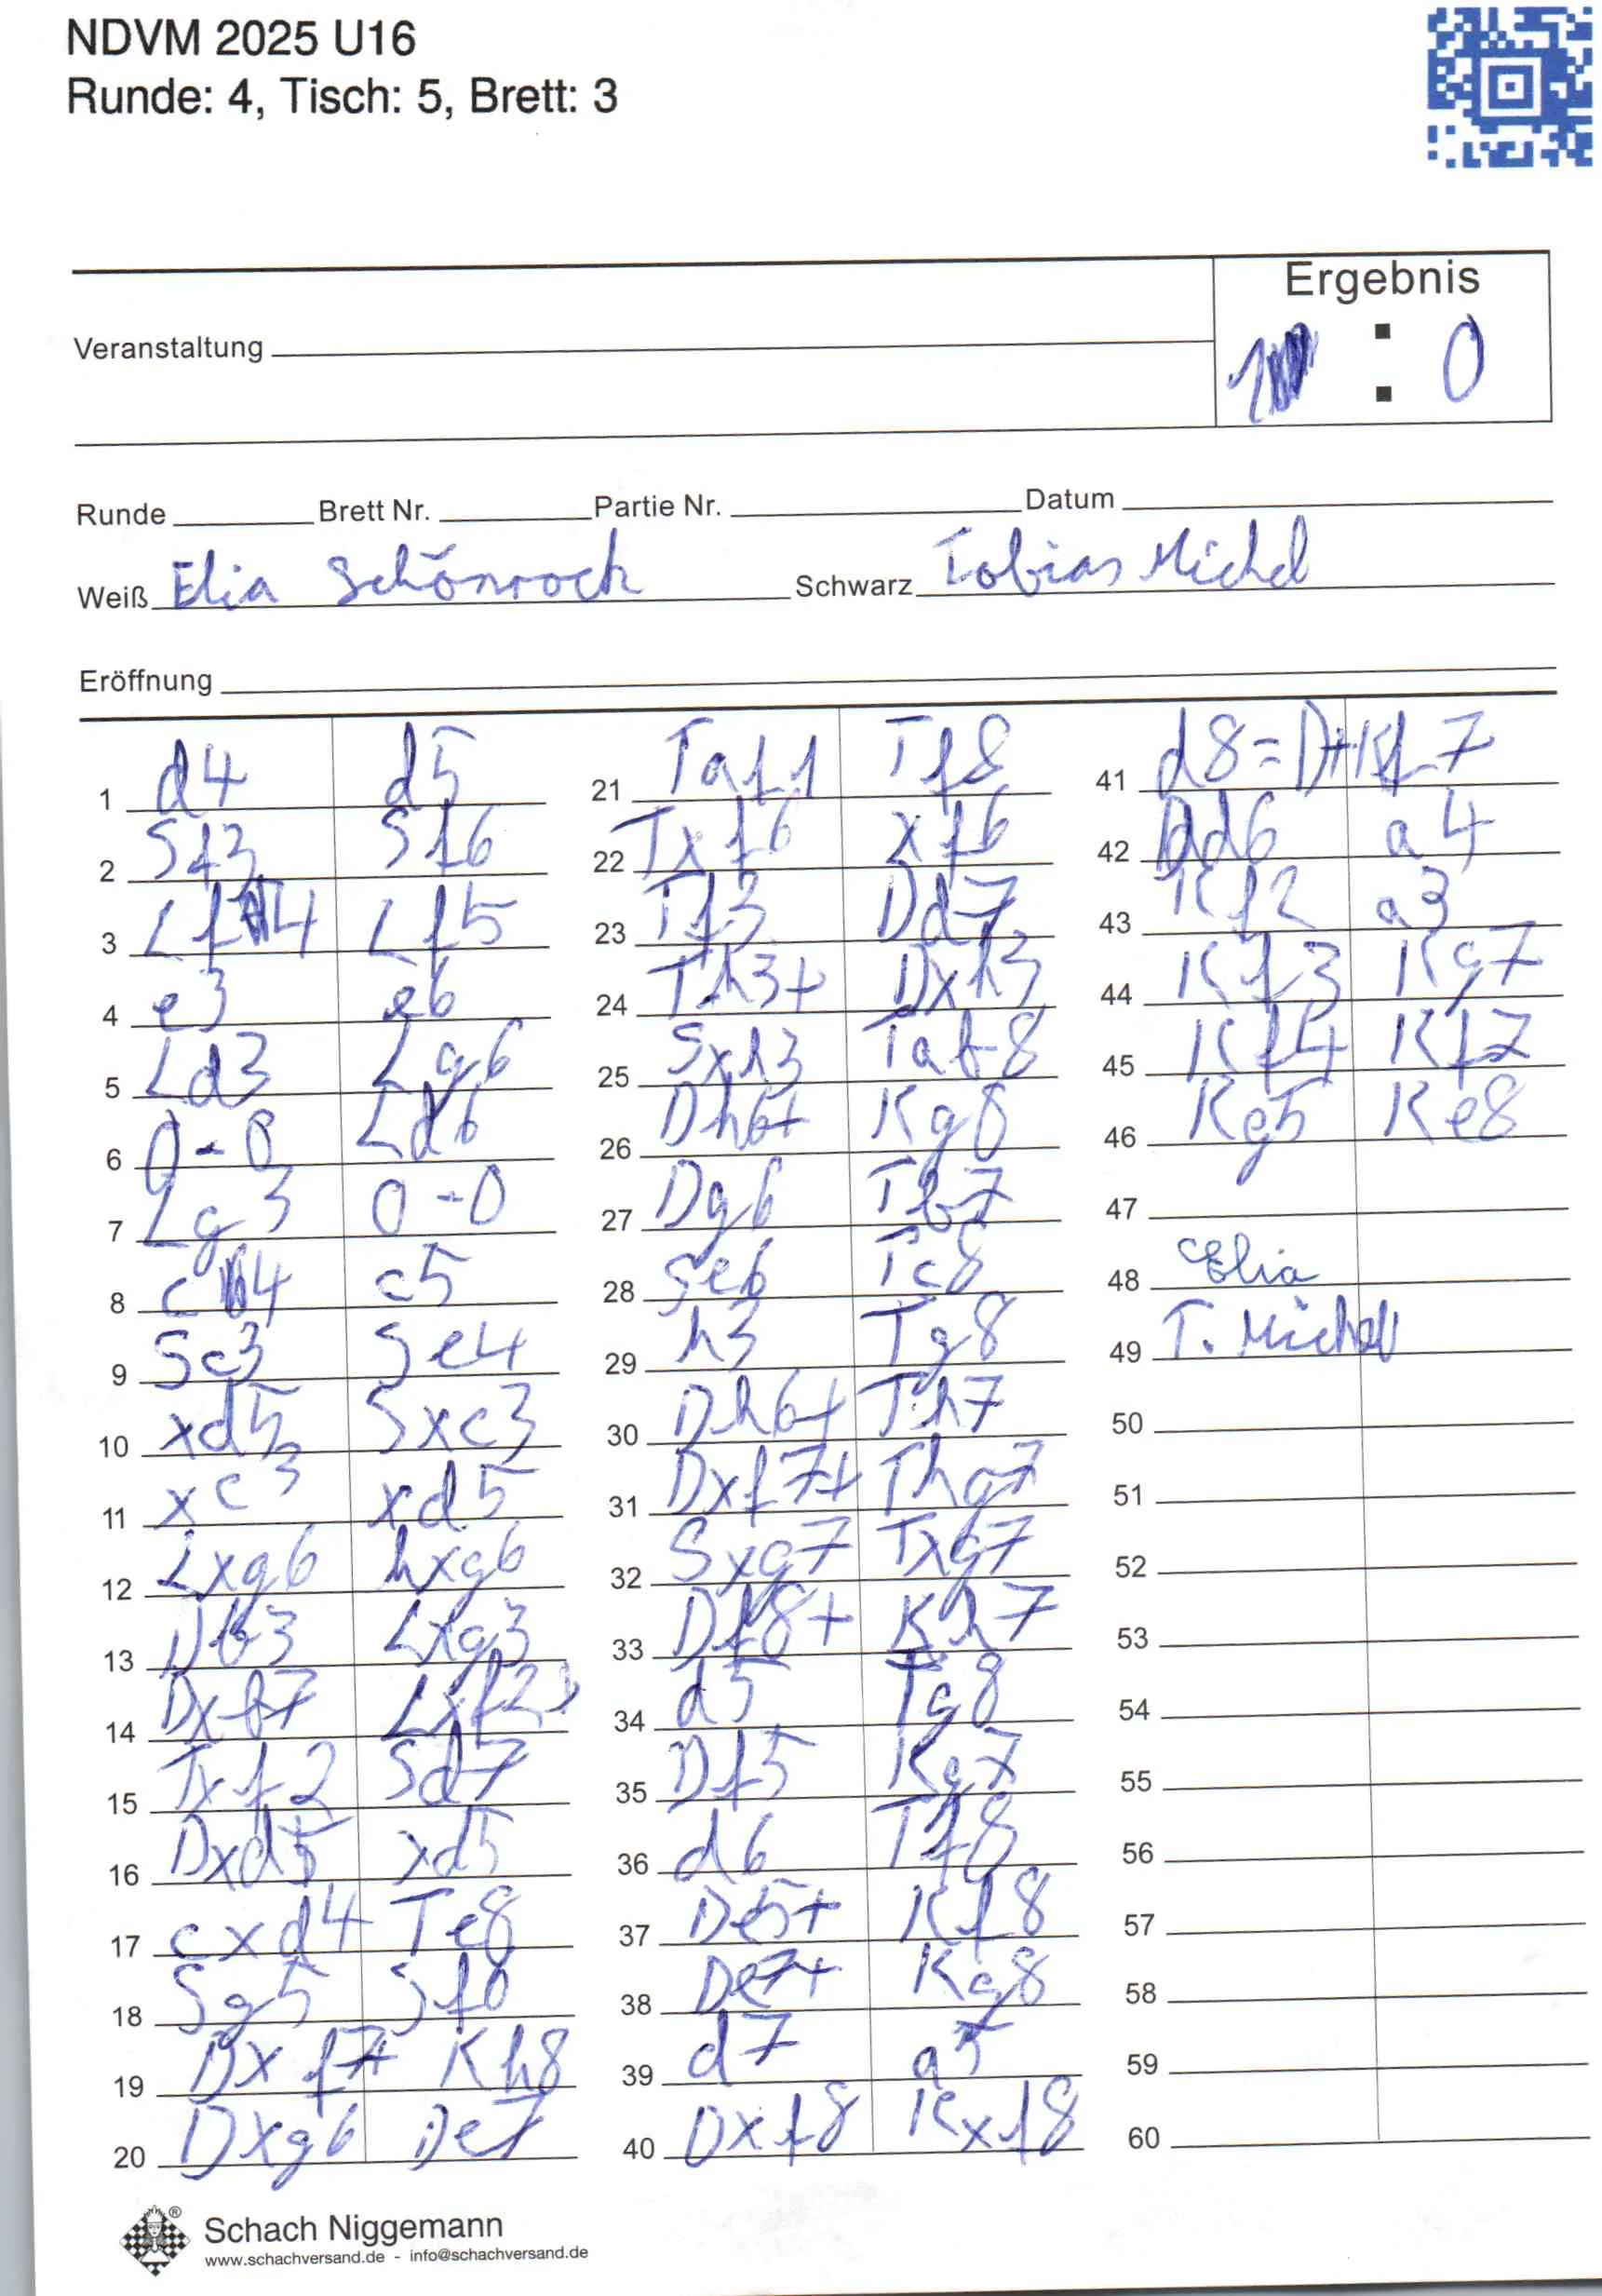 NDVM 2025 U16
Runde: 4, Tisch: 5, Brett: 3
Ergebnis
Veranstaltung
1 : 0
Runde Brett Nr. Partie Nr. Datum
Weiß Elia Schönrock Schwarz Tobias Michel
Eröffnung
1 d4 d5 21 Taf1 Tf8 41 d8=D+ Kf7
2 Sf3 Sf6 22 Txf6 xf6 42 Dd6 a4
3 Lf4 Lf5 23 Tf3 Dd7 43 Kf2 a3
4 e3 e6 24 Th3+ Dxh3 44 Kf3 Kg7
5 Ld3 Lg6 25 Sxh3 Taf8 45 Kf4 Kf7
6 0-0 Ld6 26 Dh6+ Kg8 46 Kg5 Ke8
7 Lg3 0-0 27 Dg6 Tb7 47
8 c4 c5 28 Se6 Tc8 48 Elia
9 Sc3 Se4 29 h3 Tg8 49 T. Michel
10 xd5 Sxc3 30 Dh6+ Th7 50
11 xc3 xd5 31 Dxf7+ Thg7 51
12 Lxg6 hxg6 32 Sxg7 Txg7 52
13 Db3 Lxg3 33 Df8+ Kh7 53
14 Dxb7 Lxf2+ 34 d5 Tg8 54
15 Txf2 Sd7 35 Df5 Kg7 55
16 Dxd5 xd5 36 d6 Tf8 56
17 cxd4 Te8 37 De5+ Kf8 57
18 Sg5 Sf6 38 De7+ Kg8 58
19 Dxf7+ Kh8 39 d7 a5 59
20 Dxg6 De7 40 Dxf8 Kxf8 60
Schach Niggemann
www.schachversand.de - info@schachversand.de